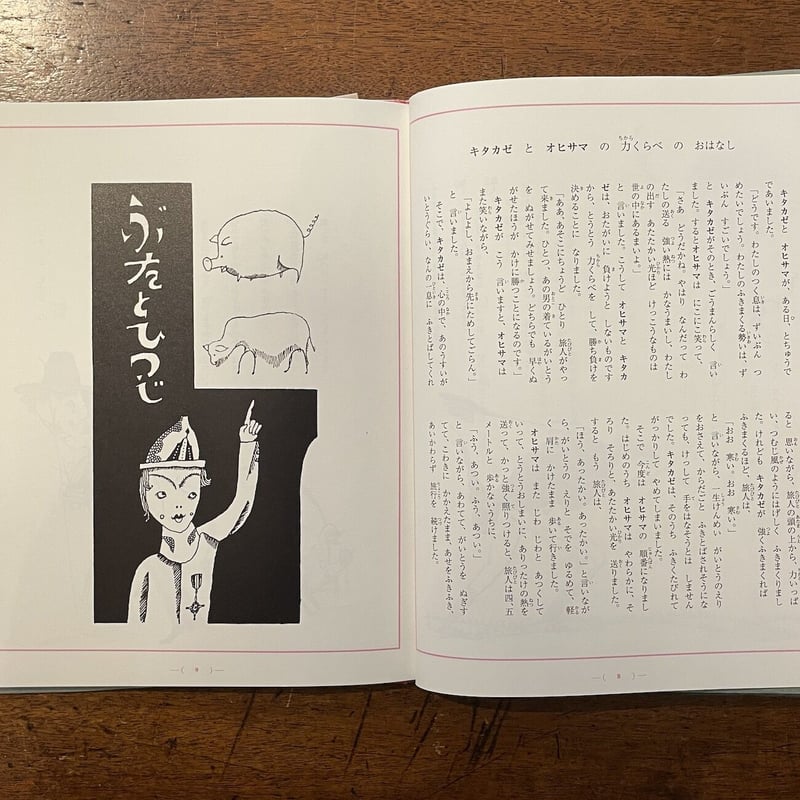 キタカゼ と オヒサマ の 力くらべ の おはなし
キタカゼと オヒサマが、ある日、とちゅうで
であいました。
「どうです。わたしのつく息は、ずいぶん つ
めたいでしょう。わたしのふきまくる勢いは、ず
いぶん すごいでしょう。」
と キタカゼがそのとき、ごうまんらしく 言い
ました。するとオヒサマは にこにこ笑って、
「さあ どうだかね。やはり なんだって わ
たしの送る 強い熱には かなうまいし、わたし
の出す あたたかい光ほど けっこうなものは
世の中にあるまいよ。」
と 言いました。こうして オヒサマと キタカ
ゼは、おたがいに 負けようと しないものです
から、とうとう 力くらべを して、勝ち負けを
決めることに なりました。
「ああ、あそこにちょうど ひとり 旅人がやっ
て来ました。ひとつ、あの男の着ているがいとう
を ぬがせてみせましょう。どちらでも 早くぬ
がせたほうが かけに勝つことになるのです。」
キタカゼが こう 言いますと、オヒサマは
また笑いながら、
「よしよし、おまえから先にためしてごらん。」
と 言いました。
そこで、キタカゼは、心の中で、あのうすいが
いとうぐらい、なんの一息に ふきとばしてくれ
ると 思いながら、旅人の頭の上から、力いっぱ
い、つむじ風のようにはげしく ふきまくりまし
た。けれども キタカゼが 強くふきまくれば
ふきまくるほど、旅人は、
「おお 寒い。おお 寒い。」
と 言いながら、一生けんめい がいとうのえり
をおさえて、からだごと ふきとばされそうにな
っても、けっして 手をはなそうとは しません
でした。キタカゼは、そのうち ふきくたびれて
がっかりして やめてしまいました。
そこで 今度は オヒサマの 順番になりまし
た。はじめのうち オヒサマは やわらかに、そ
ろり そろりと、あたたかい光を 送りました。
すると もう 旅人は、
「ほう、あったかい。あったかい。」と 言いなが
ら、がいとうの えりと そでを ゆるめて、軽
く 肩に かけたまま 歩いて行きました。
オヒサマは また じわ じわと あつくして
いって、とうとうおしまいに、ありったけの熱を
送って、かっと強く照りつけると、旅人は 四、五
メートルと 歩かないうちに、
「ふう、あつい、ふう、あつい。」
と 言いながら、あわてて、がいとうを ぬぎす
てて、こわきに かかえたまま、あせをふきふき、
あいかわらず 旅行を 続けました。
8
ぶたとひつじ
9